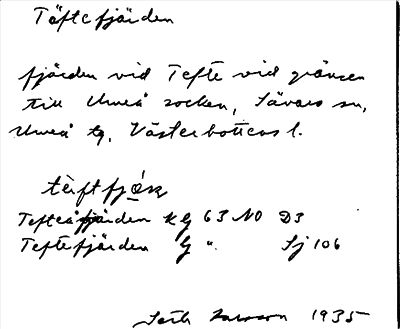 Täftefjärden
fjärden vid Tefte vid gränsen
till Umeå socken, Sävars sn,
Umeå tg, Västerbottens l.
Tefteåfjärden KG 63 NO D3
Teftefjärden G " Sj 106
Larsson 1935